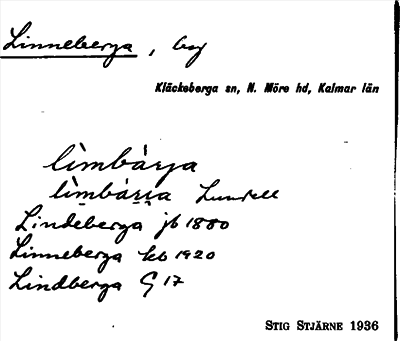 Linneberga, by
Kläckeberga sn, N. Möre hd, Kalmar län
lìmbàrja
lìmbárja Lundell
Lindeberga jb 1880
Linneberga kb 1920
Lindberga G 17
STIG STJÄRNE 1936